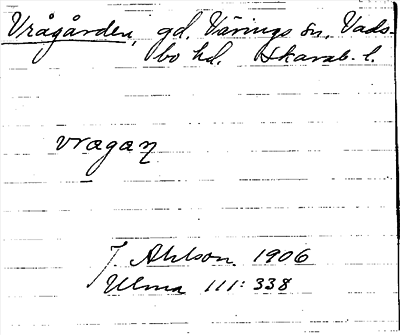 Vrågården, gd. Värings sn. Vads-
bo hd. Skarab. l.
vragaꞃ
J. Ahlson 1906
Ulma 111: 338